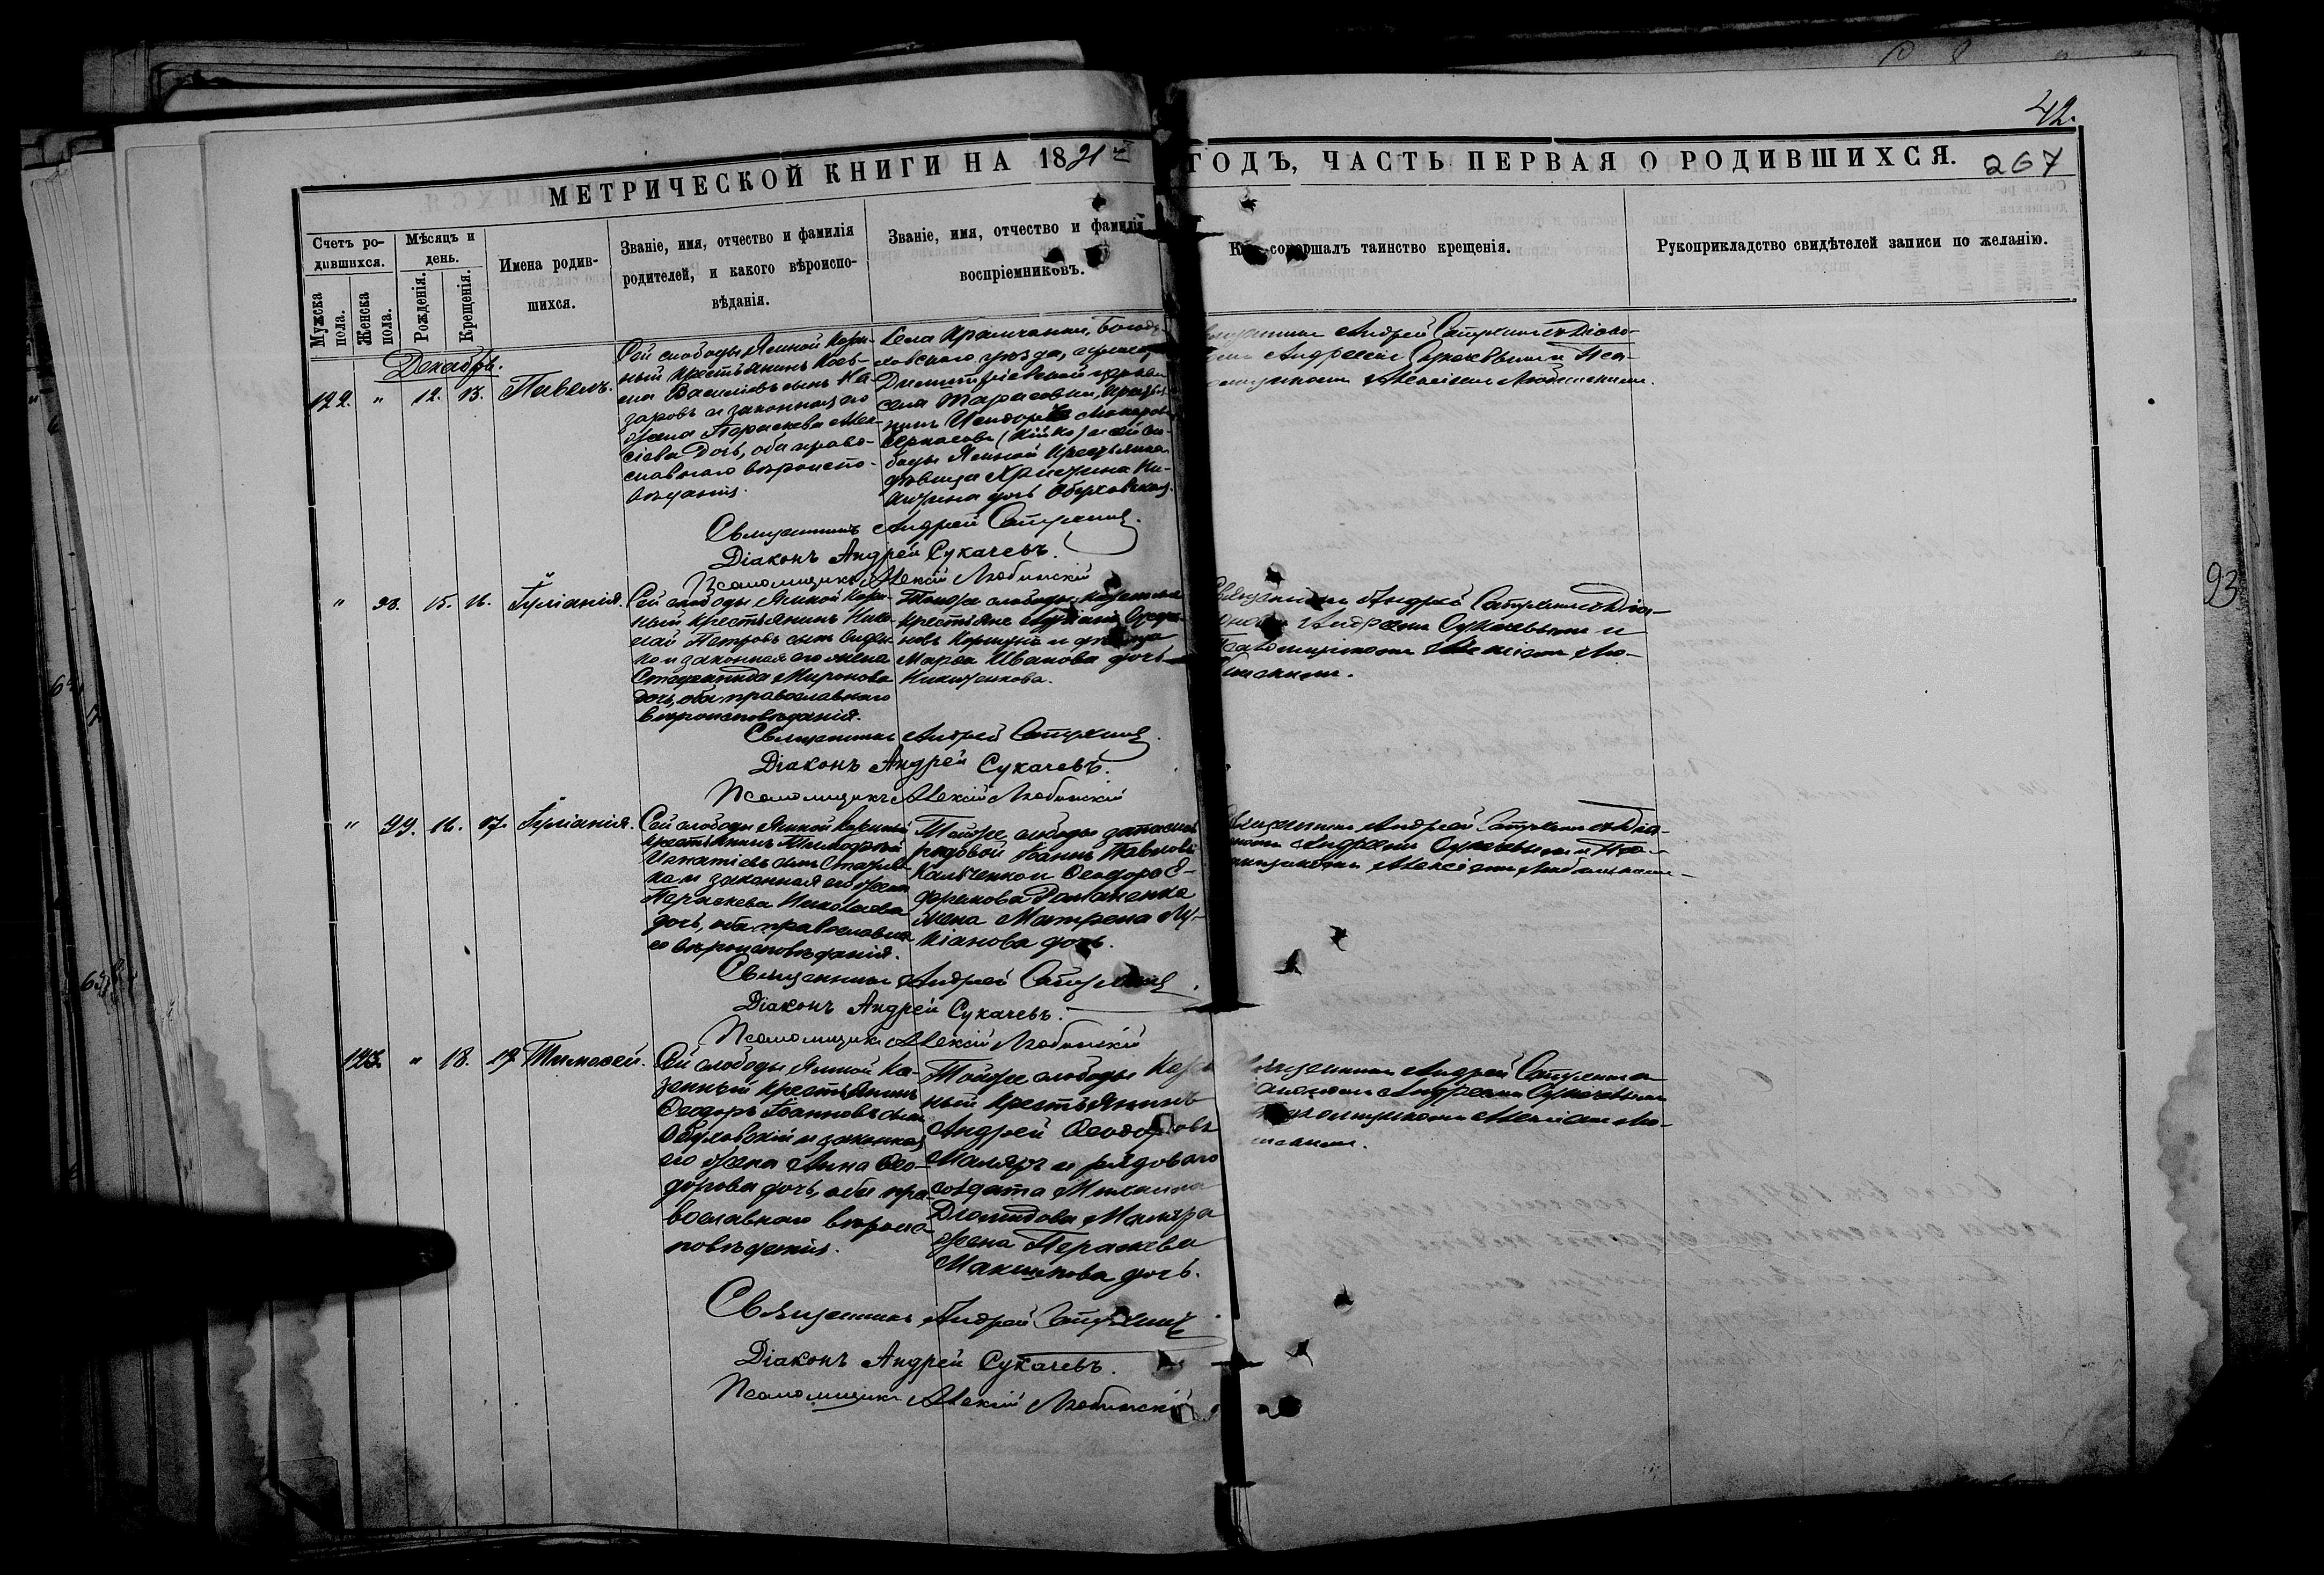 42.
МЕТРИЧЕСКОЙ КНИГИ НА 1891й ГОДЪ, ЧАСТЬ ПЕРВАЯ О РОДИВШИХСЯ.
267
Счетъ родившихся.
Мужска пола.
Женска пола.
Мѣсяцъ и день.
Рожденія.
Крещенія.
Имена родившихся.
Званіе, имя, отчество и фамилія
родителей, и какого вѣроиспо-
вѣданія.
Званіе, имя, отчество и фамилія
воспріемниковъ.
Кто совершалъ таинство крещенія.
Рукоприкладство свидѣтелей записи по желанію.
Декабрь.
122. " 12. 13. Павелъ.
Сей слободы Ямной Казен-
ный крестьянинъ
Василіевъ сынъ На-
заровъ и законная его
жена Параскева Алек-
сіева дочь, оба право-
славнаго вѣроиспо-
вѣданія.
Села Богоду-
ховскаго уѣзда,
Димитріевской
села Тарасовки,
Исидоръ
и сей сло-
боды Ямной крестьянка
дѣвица Христина Ни-
дочь Обуховская.
Священникъ Андрей
Андреемъ Сукачевымъ и Пса-
ломщикомъ Алексіемъ Любинскимъ.
Священникъ Андрей
Діаконъ Андрей Сукачевъ.
Псаломщикъ Алексій Любинскій
" 98. 15. 16. Іуліанія.
Сей слободы Ямной Казен-
ный крестьянинъ Нико-
лай Петровъ сынъ
и законная его жена
Стефанида Миронова
дочь, оба православнаго
вѣроисповѣданія.
Тойже слободы казенные
крестьяне
Коршунъ и дѣвица
Марѳа Иванова дочь
Никитенкова.
Священникъ Андрей
Андреемъ Сукачевымъ и
Псаломщикомъ Алексіемъ Лю-
бинскимъ.
Священникъ Андрей
Діаконъ Андрей Сукачевъ.
Псаломщикъ Алексій Любинскій
" 99. 16. 17. Іуліанія.
Сей слободы Ямной Казенный
крестьянинъ Тимоѳей
Игнатіевъ сынъ
и законная его жена
Параскева Николаева
дочь, оба православна-
го вѣроисповѣданія.
Тойже слободы запасной
рядовой Іоаннъ Павловъ
Кальченко и Ѳеодора Е-
фремова Романенка
жена Матрена Лу-
кіанова дочь.
Священникъ Андрей
Андреемъ Сукачевымъ и Пса-
ломщикомъ Алексіемъ Любинскимъ
Священникъ Андрей
Діаконъ Андрей Сукачевъ.
Псаломщикъ Алексій Любинскій
123. " 18. 19. Тимоѳей.
Сей слободы Ямной Ка-
зенный крестьянинъ
Ѳеодоръ Іоанновъ сынъ
Обуховскій и законная
его жена Анна Ѳео-
дорова дочь, оба пра-
вославнаго вѣроис-
повѣданія.
Тойже слободы Казен-
ный крестьянинъ
Андрей Ѳеодоровъ
Маляръ и рядоваго
солдата Михаила
Діомидова Маляра
жена Параскева
Максимова дочь.
Священникъ Андрей
Діакономъ Андреемъ Сукачевымъ
Псаломщикомъ Алексіемъ Лю-
бинскимъ.
Священникъ Андрей
Діаконъ Андрей Сукачевъ.
Псаломщикъ Алексій Любинскій
93